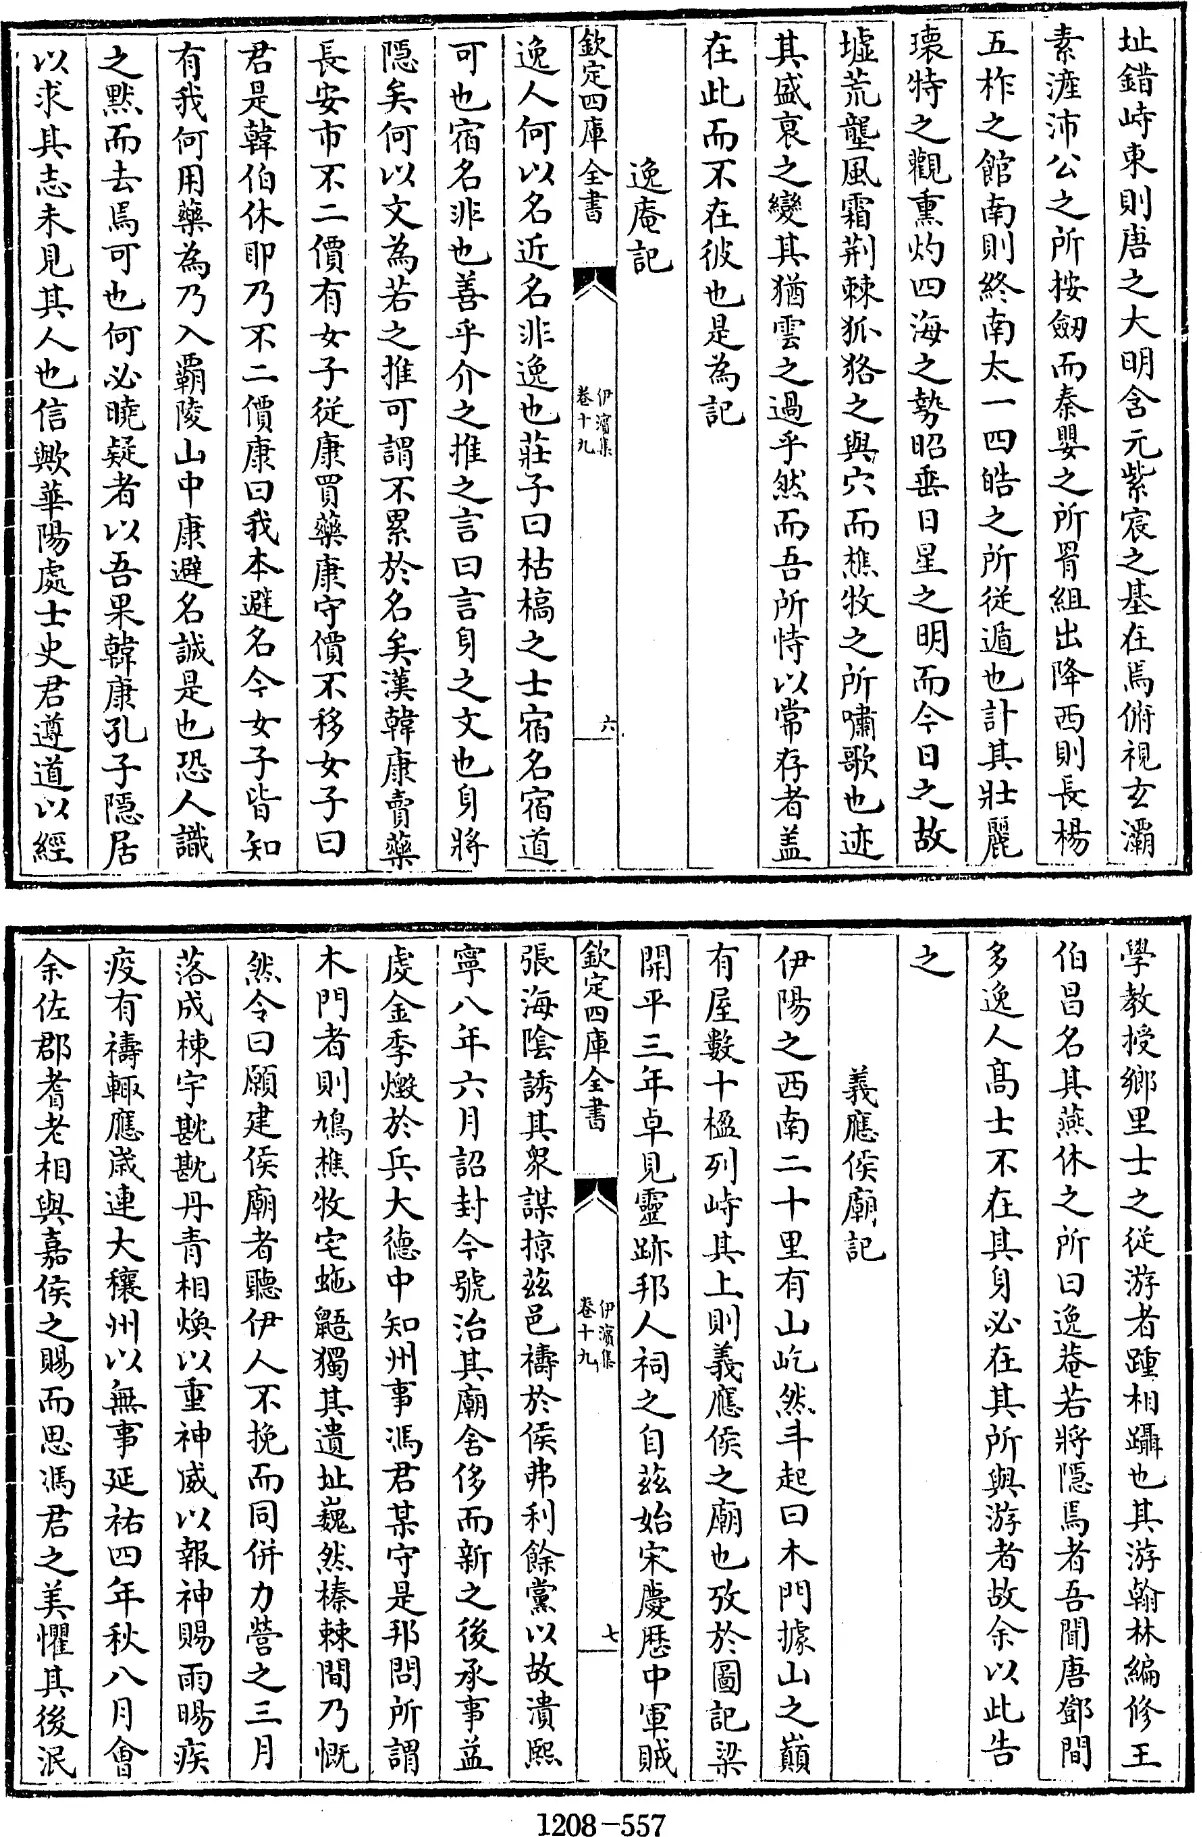 址錯峙東則唐之大明含元紫宸之基在焉俯視玄灞
素滻沛公之所按劒而秦嬰之所罥組出降西則長楊
五柞之館南則終南太一四皓之所從遁也計其壯麗
瓌特之觀熏灼四海之勢昭垂日星之明而今日之故
墟荒壟風霜荆棘狐狢之與穴而樵牧之所嘯歌也迹
其盛衰之變其猶雲之過乎然而吾所恃以常存者盖
在此而不在彼也是為記
逸庵記
欽定四庫全書
伊濱集
卷十九
六
逸人何以名近名非逸也莊子曰枯槁之士宿名宿道
可也宿名非也善乎介之推之言曰言身之文也身將
隱矣何以文為若之推可謂不累於名矣漢韓康賣藥
長安市不二價有女子從康買藥康守價不移女子曰
君是韓伯休耶乃不二價康曰我本避名今女子皆知
有我何用藥為乃入覇陵山中康避名誠是也恐人識
之默而去焉可也何必曉疑者以吾果韓康孔子隱居
以求其志未見其人也信歟華陽處士史君遵道以經
學教授鄉里士之從游者踵相躡也其游翰林編修王
伯昌名其燕休之所曰逸菴若將隱焉者吾聞唐鄧間
多逸人髙士不在其身必在其所與游者故余以此告
之
義應侯廟記
伊陽之西南二十里有山屹然斗起曰木門據山之巔
有屋數十楹列峙其上則義應侯之廟也攷於圖記梁
開平三年卓見靈跡邦人祠之自茲始宋慶厯中軍賊
欽定四庫全書
伊濱集
卷十九
七
張海陰誘其衆謀掠茲邑禱於侯弗利餘黨以故潰熙
寧八年六月詔封今號治其廟舍侈而新之後承事益
虔金季燬於兵大德中知州事馮君某守是邦問所謂
木門者則鳩樵牧宅虵鼯獨其遺址巍然榛棘間乃慨
然令曰願建侯廟者聽伊人不挽而同併力營之三月
落成棟宇耽耽丹青相煥以重神威以報神賜雨暘疾
疫有禱輒應嵗連大穰州以無事延祐四年秋八月會
余佐郡耆老相與嘉侯之賜而思馮君之美懼其後泯
1208-557